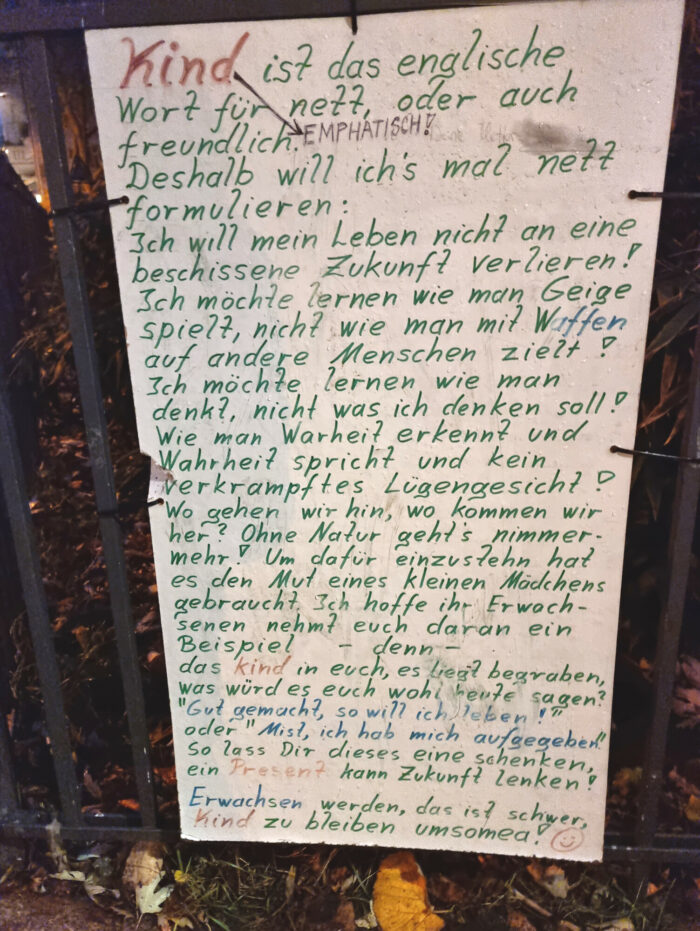 Kind ist das englische
Wort für nett, oder auch
freundlich. EMPHATISCH!
Deshalb will ich's mal nett
formulieren:
Ich will mein Leben nicht an eine
beschissene Zukunft verlieren!
Ich möchte lernen wie man Geige
spielt, nicht wie man mit Waffen
auf andere Menschen zielt!
Ich möchte lernen wie man
denkt, nicht was ich denken soll!
Wie man Warheit erkennt und
Wahrheit spricht und kein
verkrampftes Lügengesicht!
Wo gehen wir hin, wo kommen wir
her? Ohne Natur geht's nimmer-
mehr! Um dafür einzustehn hat
es den Mut eines kleinen Mädchens
gebraucht. Ich hoffe ihr Erwach-
senen nehmt euch daran ein
Beispiel - denn -
das kind in euch, es liegt begraben,
was würd es euch wohl heute sagen?
"Gut gemacht, so will ich leben!"
oder "Mist, ich hab mich aufgegeben!"
So lass Dir dieses eine schenken,
ein Present kann Zukunft lenken!
Erwachsen werden, das ist schwer,
Kind zu bleiben umsomea!